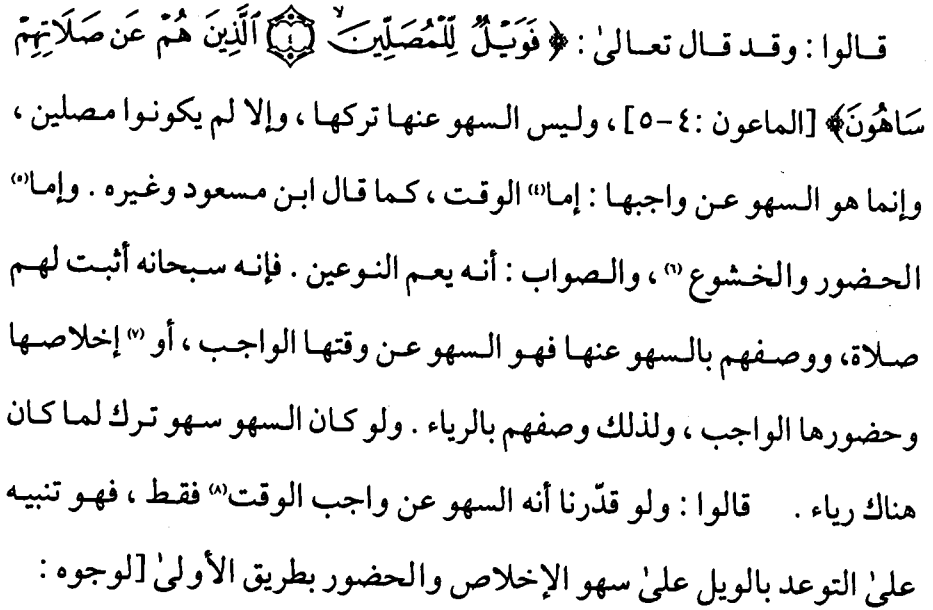 قالوا : وقد قال تعالىٰ : ﴿ فَوَيْلٌ لِّلْمُصَلِّينَ ۙ ۝٤ ٱلَّذِينَ هُمْ عَن صَلَاتِهِمْ
سَاهُونَ﴾ [الماعون :٤-٥] ، وليس السهو عنها تركها ، وإلا لم يكونوا مصلين ،
وإنما هو السهو عن واجبها : إما(٤) الوقت ، كما قال ابن مسعود وغيره . وإما(٥)
الحضور والخشوع (٦) ، والصواب : أنه يعم النوعين . فإنه سبحانه أثبت لهم
صلاة، ووصفهم بالسهو عنها فهو السهو عن وقتها الواجب ، أو (٧) إخلاصها
وحضورها الواجب ، ولذلك وصفهم بالرياء . ولو كان السهو سهو ترك لما كان
هناك رياء . قالوا : ولو قدّرنا أنه السهو عن واجب الوقت(٨) فقط ، فهو تنبيه
علىٰ التوعد بالويل علىٰ سهو الإخلاص والحضور بطريق الأولىٰ [لوجوه :